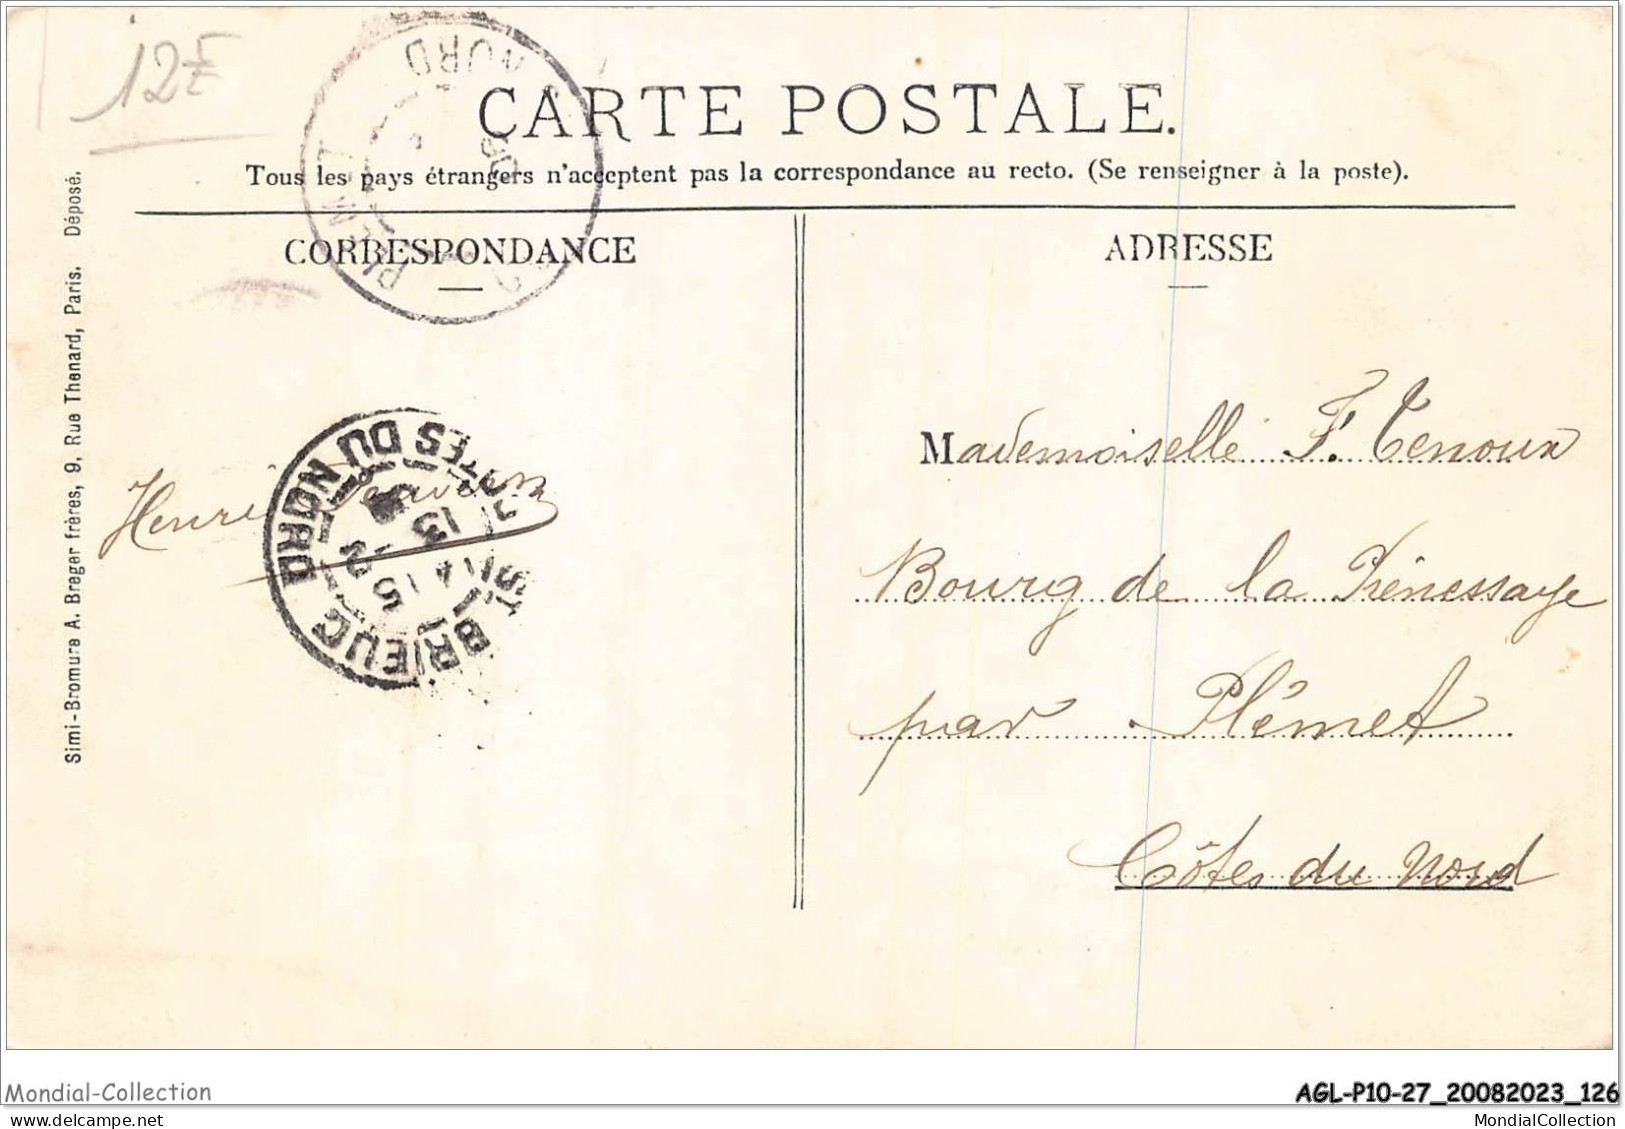 12F
CARTE POSTALE.
Tous les pays étrangers n'acceptent pas la correspondance au recto. (Se renseigner à la poste).
CORRESPONDANCE
ADRESSE
Simi-Bromure A. Breger frères, 9, Rue Thenard, Paris. Déposé.
PLEMET
NORD
Henri
ST BRIEUC
COTES DU NORD
14 15
13 2
Mademoiselle F. Tenoux
Bourg de la Prénessaye
par Plémet
Côtes du Nord
Mondial-Collection
AGL-P10-27_20082023_126
MondialCollection